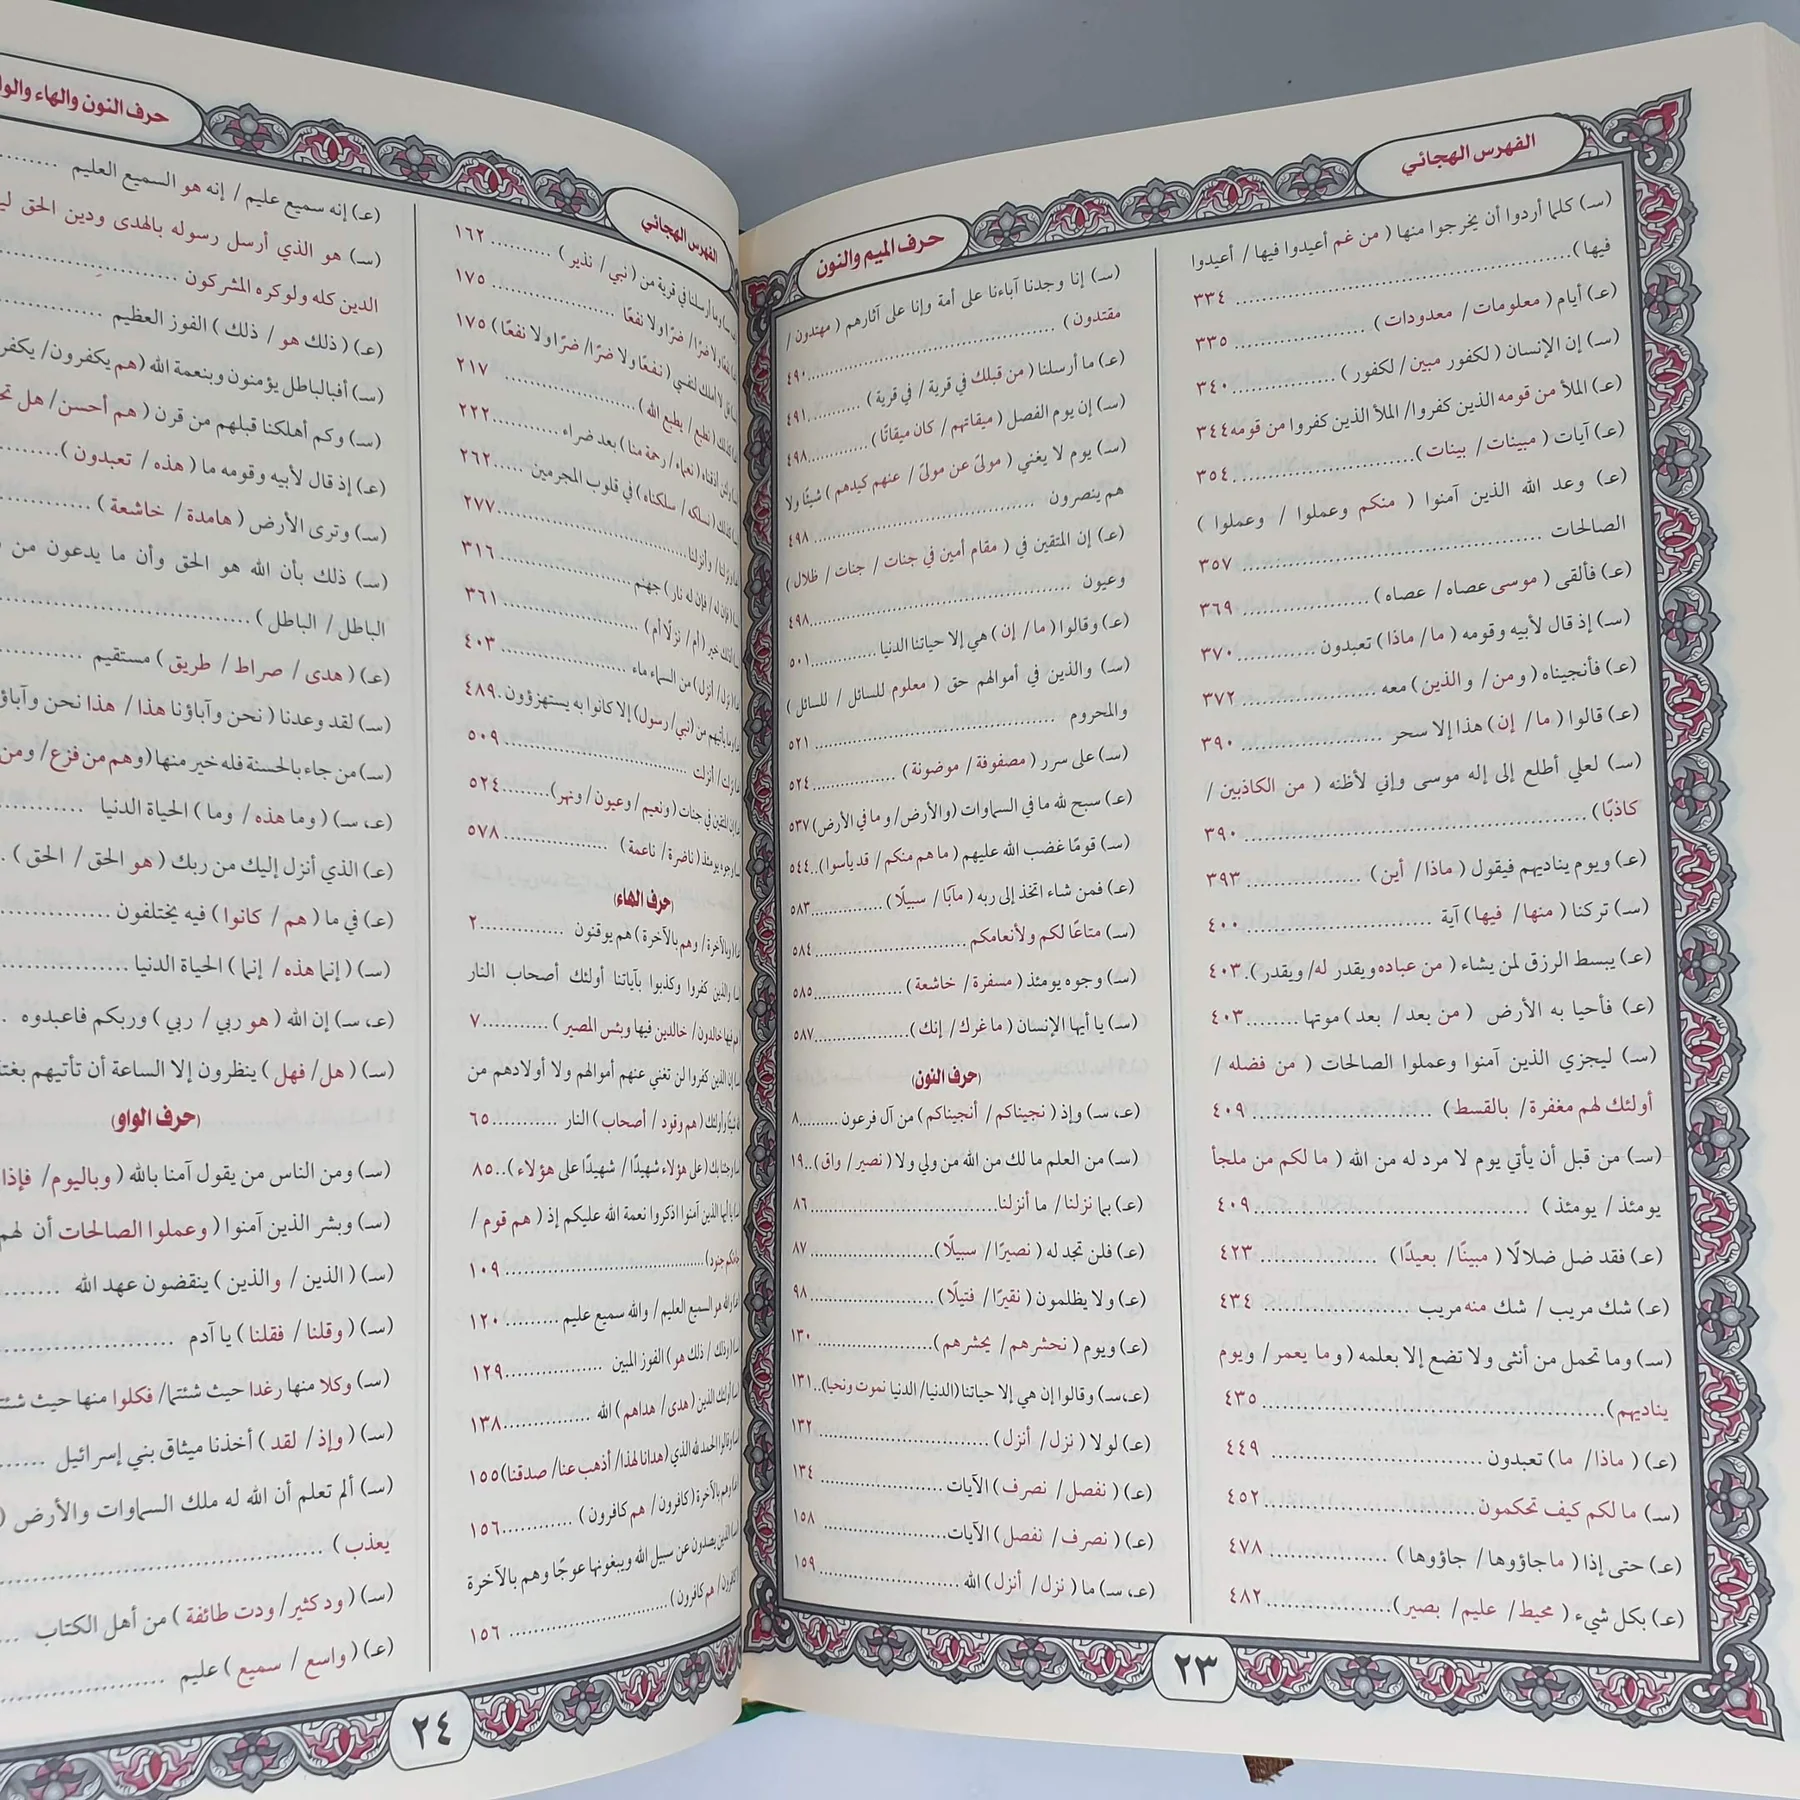 الفهرس الهجائي
حرف الميم والنون
(سـ) كلما أردوا أن يخرجوا منها ( من غم أعيدوا فيها / أعيدوا
فيها )........ ٣٣٤
(عـ) أيام ( معلومات / معدودات )........ ٣٣٥
(سـ) إن الإنسان ( لكفور مبين / لكفور )........ ٣٤٠
(عـ) الملأ من قومه الذين كفروا / الملأ الذين كفروا من قومه ٣٤٤
(عـ) آيات ( مبينات / بينات )........ ٣٥٤
(عـ) وعد الله الذين آمنوا ( منكم وعملوا / وعملوا )
الصالحات ........ ٣٥٧
(عـ) فألقى ( موسى عصاه / عصاه )........ ٣٦٩
(سـ) إذ قال لأبيه وقومه ( ما / ماذا ) تعبدون ........ ٣٧٠
(عـ) فأنجيناه ( ومن / والذين ) معه ........ ٣٧٢
(عـ) قالوا ( ما / إن ) هذا إلا سحر ........ ٣٩٠
(سـ) لعلي أطلع إلى إله موسى وإني لأظنه ( من الكاذبين /
كاذبًا )........ ٣٩٠
(عـ) ويوم يناديهم فيقول ( ماذا / أين )........ ٣٩٣
(سـ) تركنا ( منها / فيها ) آية ........ ٤٠٠
(عـ) يبسط الرزق لمن يشاء ( من عباده ويقدر له / ويقدر ). ٤٠٣
(عـ) فأحيا به الأرض ( من بعد / بعد ) موتها ........ ٤٠٣
(سـ) ليجزي الذين آمنوا وعملوا الصالحات ( من فضله /
أولئك لهم مغفرة / بالقسط )........ ٤٠٩
(سـ) من قبل أن يأتي يوم لا مرد له من الله ( ما لكم من ملجأ
يومئذ / يومئذ )........ ٤٠٩
(عـ) فقد ضل ضلالًا ( مبينًا / بعيدًا )........ ٤٢٣
(عـ) شك مريب / شك منه مريب ........ ٤٣٤
(سـ) وما تحمل من أنثى ولا تضع إلا بعلمه ( وما يعمر / ويوم
يناديهم )........ ٤٣٥
(عـ) ( ماذا / ما ) تعبدون ........ ٤٤٩
(سـ) ما لكم كيف تحكمون ........ ٤٥٢
(عـ) حتى إذا ( ما جاؤوها / جاؤوها )........ ٤٧٨
(عـ) بكل شيء ( محيط / عليم / بصير )........ ٤٨٢
(سـ) إنا وجدنا آباءنا على أمة وإنا على آثارهم ( مهتدون /
مقتدون )........ ٤٩٠
(عـ) ما أرسلنا ( من قبلك في قرية / في قرية )........ ٤٩١
(سـ) إن يوم الفصل ( ميقاتهم / كان ميقاتًا )........ ٤٩٨
(سـ) يوم لا يغني ( مولىً عن مولىً / عنهم كيدهم ) شيئًا ولا
هم ينصرون ........ ٤٩٨
(عـ) إن المتقين في ( مقام أمين في جنات / جنات / ظلال )
وعيون ........ ٤٩٨
(عـ) وقالوا ( ما / إن ) هي إلا حياتنا الدنيا ........ ٥٠١
(سـ) والذين في أموالهم حق ( معلوم للسائل / للسائل )
والمحروم ........ ٥٢١
(سـ) على سرر ( مصفوفة / موضونة )........ ٥٢٤
(عـ) سبح لله ما في السماوات (والأرض / وما في الأرض) ٥٣٧
(سـ) قومًا غضب الله عليهم ( ما هم منكم / قد يأسوا )..٥٤٤
(عـ) فمن شاء اتخذ إلى ربه ( مآبًا / سبيلًا )........ ٥٨٣
(سـ) متاعًا لكم ولأنعامكم ........ ٥٨٤
(سـ) وجوه يومئذ ( مسفرة / خاشعة )........ ٥٨٥
(سـ) يا أيها الإنسان ( ما غرك / إنك )........ ٥٨٧
(حرف النون)
(عـ، سـ) وإذ ( نجيناكم / أنجيناكم ) من آل فرعون ........ ٨
(سـ) من العلم ما لك من الله من ولي ولا ( نصير / واق )..١٩
(عـ) بما نزلنا / ما أنزلنا........ ٨٦
(عـ) فلن تجد له ( نصيرًا / سبيلًا )........ ٨٧
(عـ) ولا يظلمون ( نقيرًا / فتيلًا )........ ٩٨
(عـ) ويوم ( نحشرهم / يحشرهم )........ ١٣٠
(عـ،سـ) وقالوا إن هي إلا حياتنا (الدنيا / الدنيا نموت ونحيا)..١٣١
(عـ) لولا ( نزل / أنزل )........ ١٣٢
(عـ) ( نفصل / نصرف ) الآيات ........ ١٣٤
(عـ) ( نصرف / نفصل ) الآيات ........ ١٥٨
(عـ، سـ) ما ( نزل / أنزل ) الله ........ ١٥٩
٢٣
الفهرس الهجائي
حرف النون والهاء والوا
وما أرسلنا في قرية من ( نبي / نذير )........ ١٦٢
نفعًا ولا ضرًا / ضرًا ولا نفعًا ........ ١٧٥
قل لا أملك لنفسي ( نفعًا ولا ضرًا / ضرًا ولا نفعًا ) ١٧٥
كذلك ( نطبع / يطبع الله )........ ٢١٧
ولئن أذقناه ( نعماء / رحمة منا ) بعد ضراء ........ ٢٢٢
كذلك ( نسلكه / سلكناه ) في قلوب المجرمين ........ ٢٦٢
ونزلنا / وأنزلنا ........ ٢٧٧
( فإن له / فإن له نار ) جهنم ........ ٣١٦
أذلك خير ( أم / نزلًا أم )........ ٣٦١
( نزل / أنزل ) من السماء ماء ........ ٤٠٣
وما يأتيهم من ( نبي / رسول ) إلا كانوا به يستهزؤون. ٤٨٩
نزلت / أنزلت ........ ٥٠٩
إن المتقين في جنات ( ونعيم / وعيون / ونهر )........ ٥٢٤
وجوه يومئذ ( ناضرة / ناعمة )........ ٥٧٨
(حرف الهاء)
( وبالآخرة / وهم بالآخرة ) هم يوقنون ........ ٢
والذين كفروا وكذبوا بآياتنا أولئك أصحاب النار
هم فيها خالدون / خالدين فيها وبئس المصير )........ ٧
إن الذين كفروا لن تغني عنهم أموالهم ولا أولادهم من
الله شيئًا وأولئك ( هم وقود / أصحاب ) النار ........ ٦٥
وجئنا بك (على هؤلاء شهيدًا / شهيدًا على هؤلاء )..٨٥
يا أيها الذين آمنوا اذكروا نعمة الله عليكم إذ ( هم قوم /
جاءتكم جنود )........ ١٠٩
والله هو السميع العليم / والله سميع عليم ........ ١٢٠
( وذلك / ذلك هو ) الفوز المبين ........ ١٢٩
أولئك الذين ( هدى / هداهم ) الله ........ ١٣٨
وقالوا الحمد لله الذي ( هدانا لهذا / أذهب عنا / صدقنا )١٥٥
وهم بالآخرة ( كافرون / هم كافرون )........ ١٥٦
الذين يصدون عن سبيل الله ويبغونها عوجًا وهم بالآخرة
( كافرون / هم كافرون )........ ١٥٦
(عـ) إنه سميع عليم / إنه هو السميع العليم ........
(سـ) هو الذي أرسل رسوله بالهدى ودين الحق
الدين كله ولو كره المشركون ........
(عـ) ( ذلك هو / ذلك ) الفوز العظيم ........
(سـ) أفبالباطل يؤمنون وبنعمة الله ( هم يكفرون / يكفر
(سـ) وكم أهلكنا قبلهم من قرن ( هم أحسن / هل
(عـ) إذ قال لأبيه وقومه ما ( هذه / تعبدون )........
(سـ) وترى الأرض ( هامدة / خاشعة )........
(سـ) ذلك بأن الله هو الحق وأن ما يدعون من
الباطل / الباطل )........
(عـ) ( هدى / صراط / طريق ) مستقيم ........
(سـ) لقد وعدنا ( نحن وآباؤنا هذا / هذا نحن وآباؤ
(سـ) من جاء بالحسنة فله خير منها ( وهم من فزع / ومن
(عـ، سـ) ( وما هذه / وما ) الحياة الدنيا ........
(عـ) الذي أنزل إليك من ربك ( هو الحق / الحق )..
(عـ) في ما ( هم / كانوا ) فيه يختلفون ........
(سـ) ( إنما هذه / إنما ) الحياة الدنيا ........
(عـ، سـ) إن الله ( هو ربي / ربي ) وربكم فاعبدوه ..
(سـ) ( هل / فهل ) ينظرون إلا الساعة أن تأتيهم بغتة
(حرف الواو)
(سـ) ومن الناس من يقول آمنا بالله ( وباليوم / فإذا
(سـ) وبشر الذين آمنوا ( وعملوا الصالحات أن لهم
(سـ) ( الذين / والذين ) ينقضون عهد الله ........
(سـ) ( وقلنا / فقلنا ) يا آدم ........
(سـ) وكلا منها رغدا حيث شئتما / فكلوا منها حيث
(سـ) ( وإذ / لقد ) أخذنا ميثاق بني إسرائيل ........
(سـ) ألم تعلم أن الله له ملك السماوات والأرض (
يعذب )........
(سـ) ( ود كثير / ودت طائفة ) من أهل الكتاب ....
(عـ) ( واسع / سميع ) عليم ........
٢٤